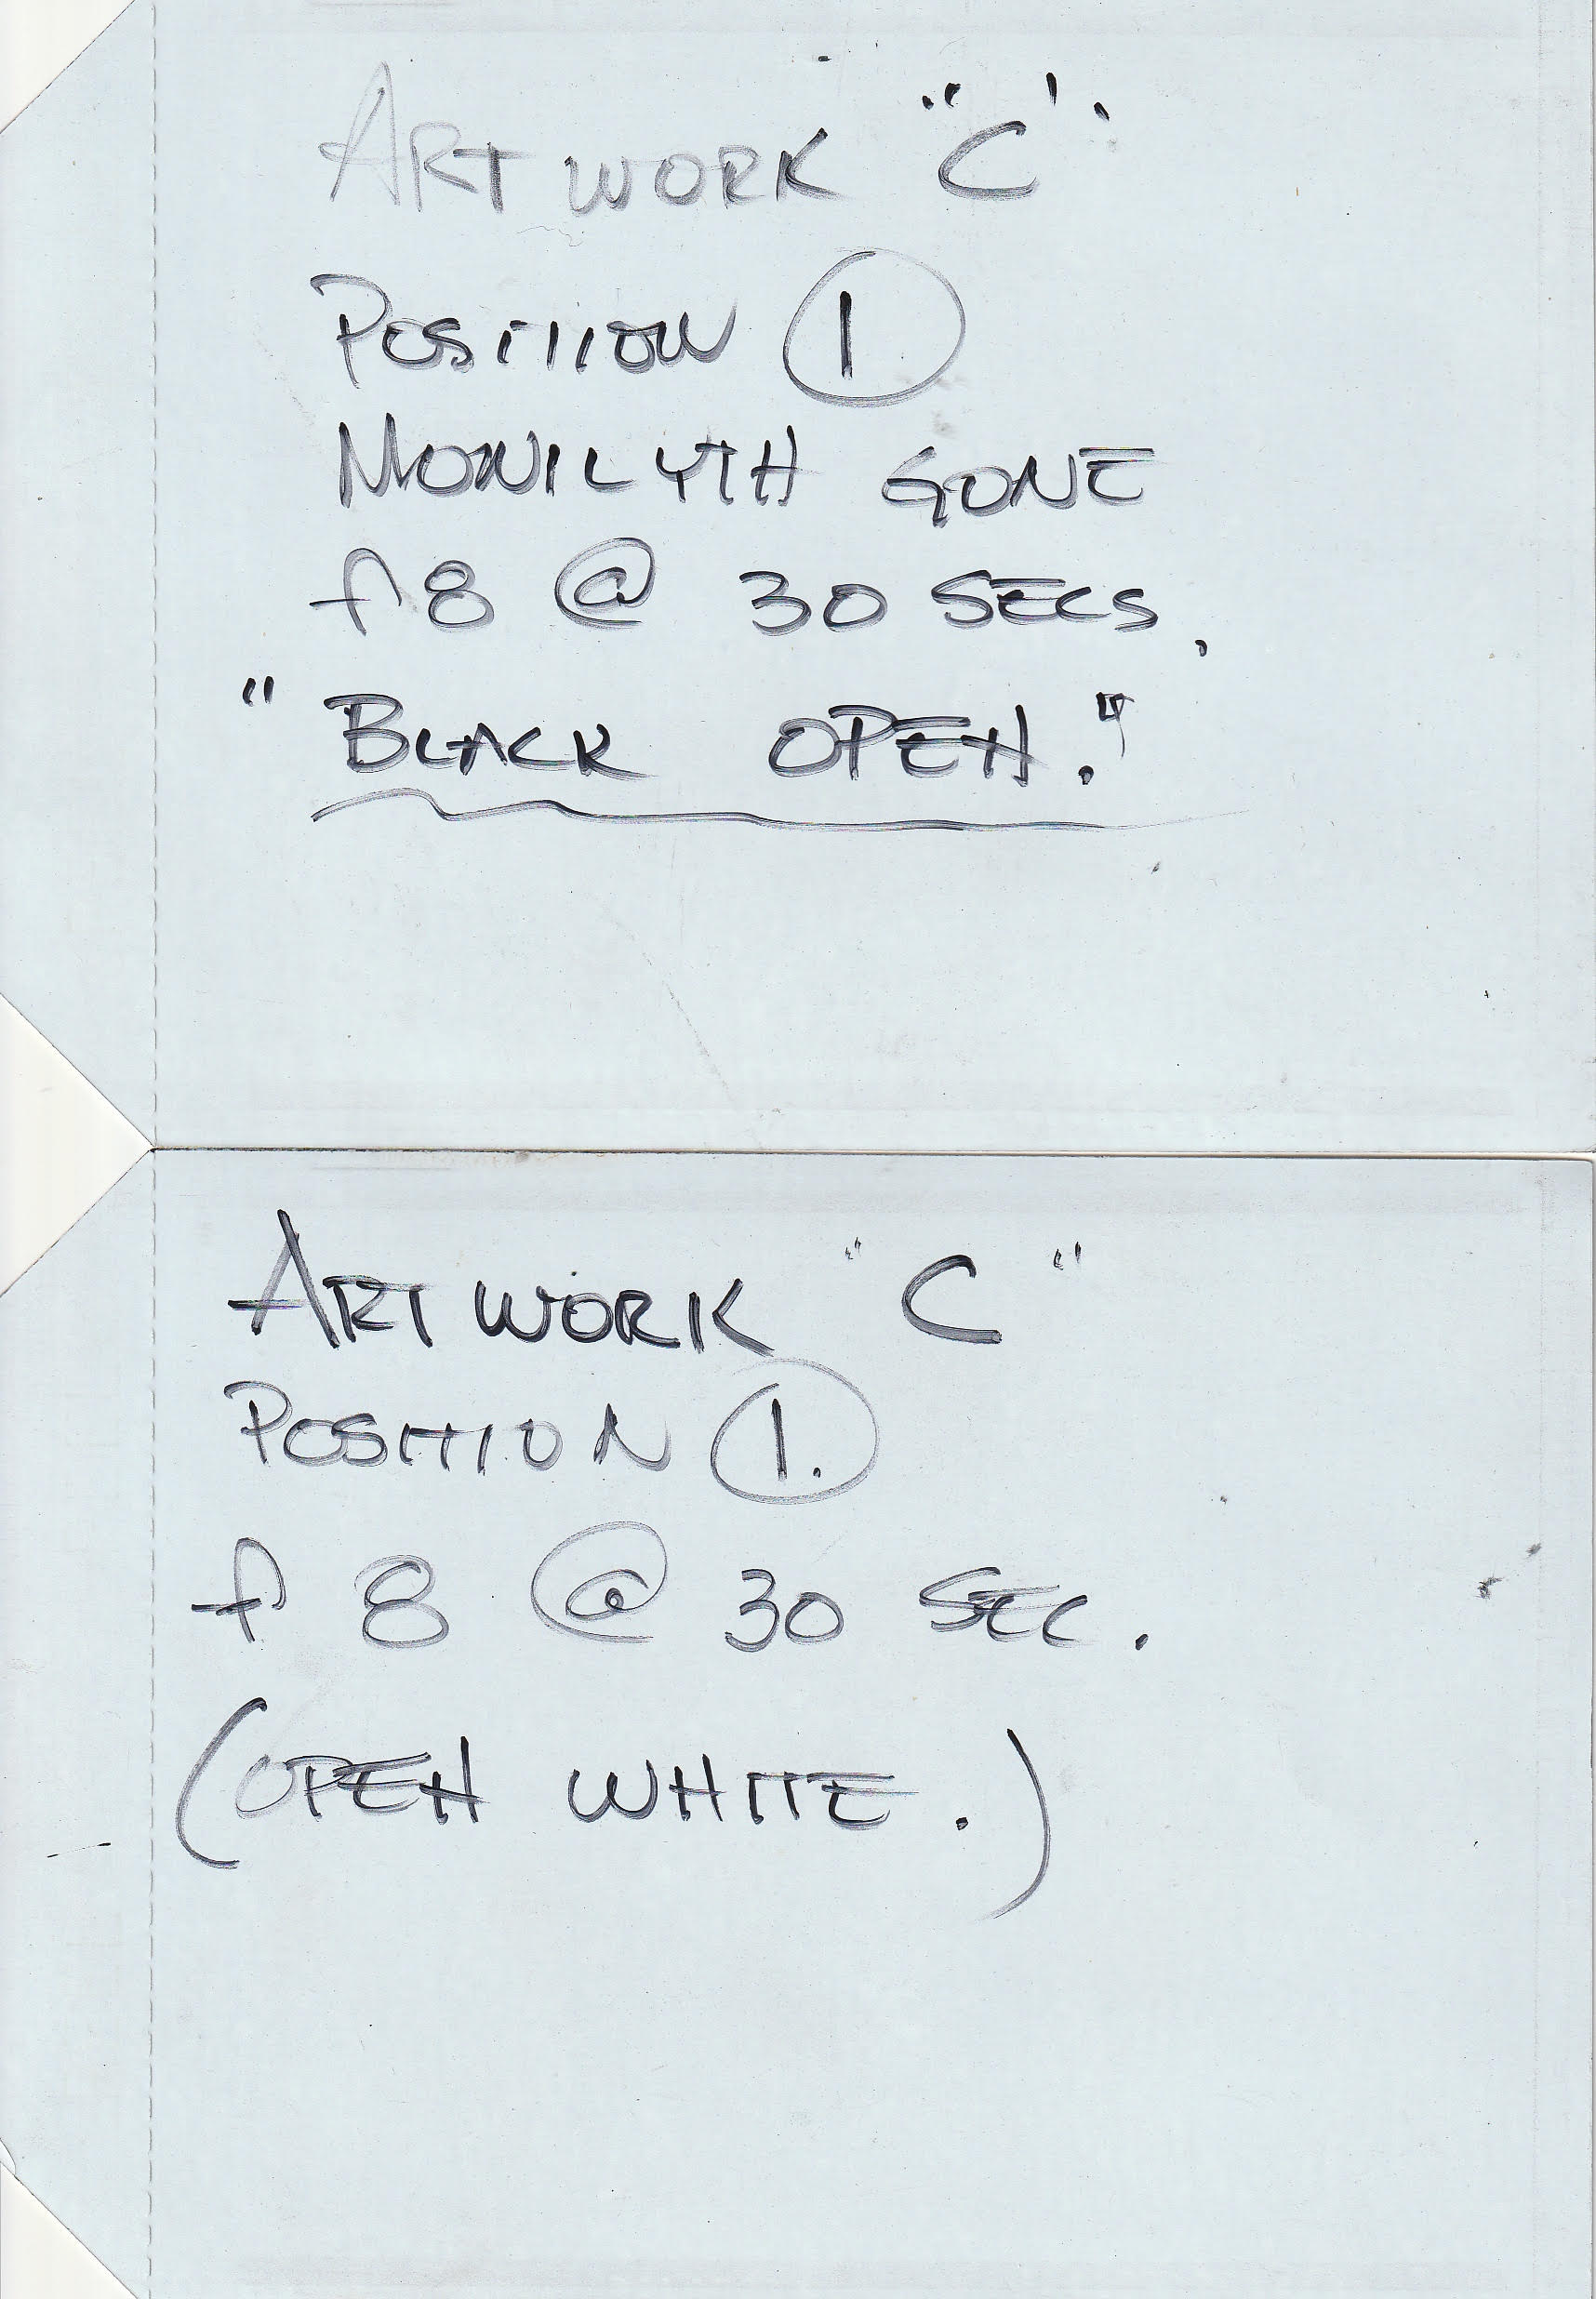 ARTWORK "C"
POSITION 1
MONILYTH GONE
f8 @ 30 SECS.
"BLACK OPEN."
ARTWORK "C"
POSITION 1.
f 8 @ 30 SEC.
(OPEN WHITE.)